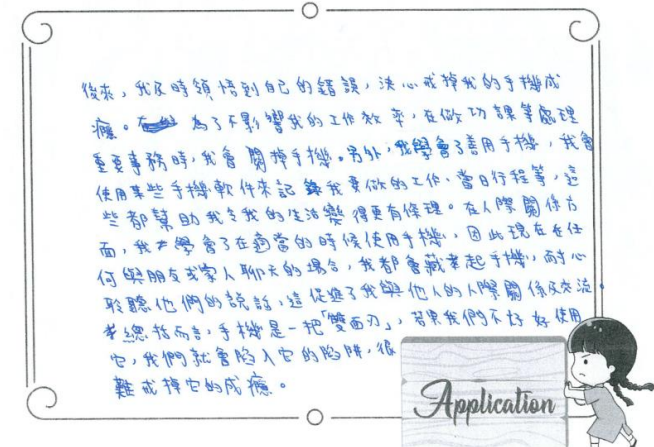 後來，我及時領悟到自己的錯誤，決心戒掉我的手機成
癮。為了不影響我的工作效率，在做功課等處理
重要事務時，我會關掉手機。另外，我學會了善用手機，我會
使用某些手機軟件來記錄我要做的工作、當日行程等，這
些都幫助我令我的生活變得更有條理。在人際關係方
面，我學會了在適當的時候使用手機，因此現在在任
何與朋友或家人聊天的場合，我都會藏起手機，耐心
聆聽他們的說話，這促進了我與他人的人際關係及交流。
總括而言，手機是一把「雙面刃」，若果我們不好好使用
它，我們就會陷入它的陷阱，很
難戒掉它的成癮。
Application